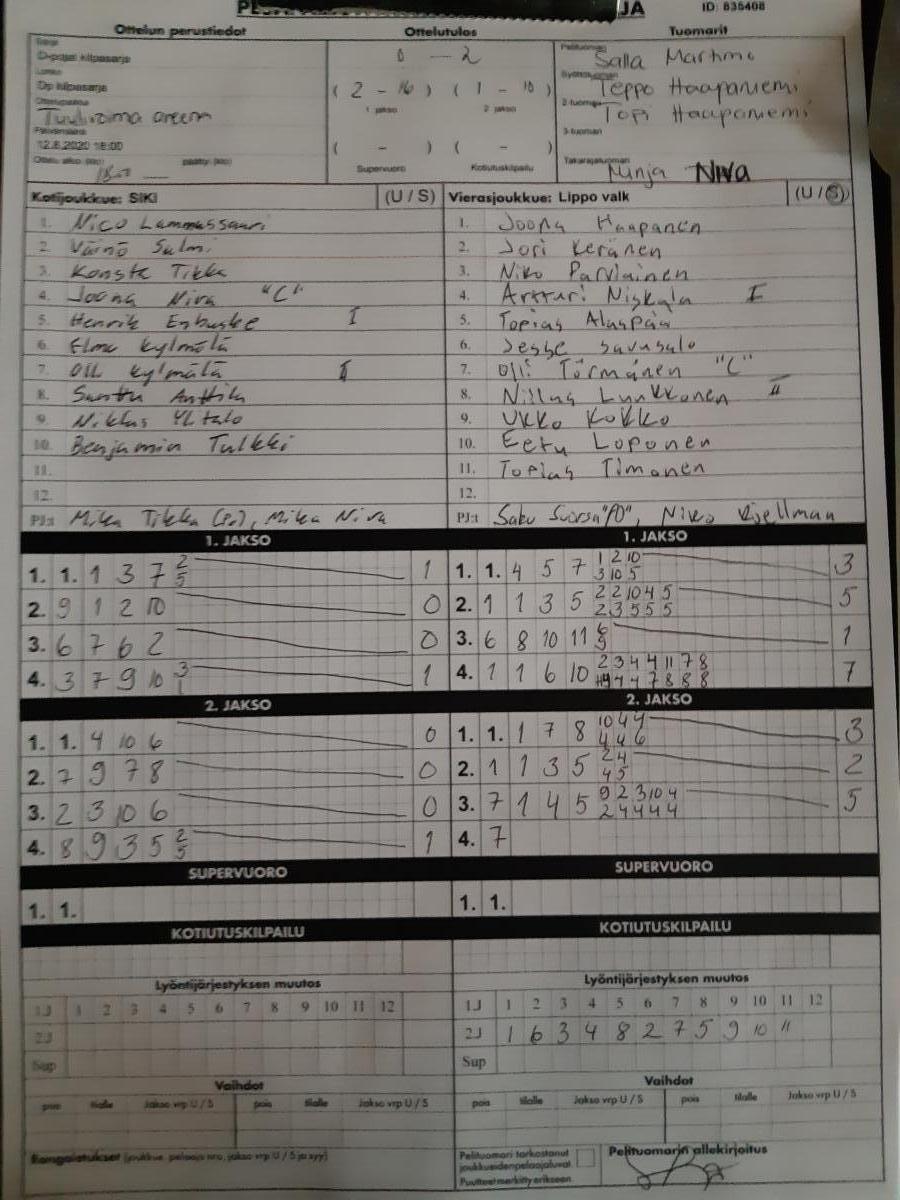 JA ID: 835408
Ottelun perustiedot Ottelutulos Tuomarit
Sarja
D-pojat kilpasarja
0 - 2
Pelituomari Salla Martimo
Lohko
Dp kilpasarja
( 2 - 16 ) ( 1 - 10 )
1 jakso 2 jakso
Syöttötuomari Teppo Haapaniemi
Ottelupaikka
Tuulivoima areena
2-tuomari Topi Haapaniemi
Päivämäärä
12.8.2020 18:00
( - ) ( - )
3-tuomari
Ottelu alkoi (klo) päättyi (klo)
Supervuoro Kotiutuskilpailu
Takarajatuomari Ninja Niva
Kotijoukkue: SiKi (U / S) Vierasjoukkue: Lippo valk (U / S)
1. Nico Lammassaari 1. Joona Haapanen
2. Väinö Salmi 2. Jori Keränen
3. Konsta Tikka 3. Niko Parviainen
4. Joona Niva "C" 4. Artturi Niskala I
5. Henrik Enbuske I 5. Topias Alaspää
6. Elmo Kylmälä 6. Jesse Savusalo
7. Olli Kylmälä I 7. Olli Törmänen "C"
8. Santtu Anttila 8. Niilas Lunkkonen II
9. Niklas Ylitalo 9. Ukko Kokko
10. Benjamin Tulkki 10. Eetu Loponen
11. 11. Topias Timonen
12. 12.
PJ:t Mika Tikka (Pj.), Mika Niva PJ:t Saku Suorsa "PJ", Niko Kjellman
1. JAKSO 1. JAKSO
1. 1. 1 3 7 2 5 1 1. 1. 4 5 7 1 2 10 3 10 5 3
2. 9 1 2 10 0 2. 1 1 3 5 2 2 10 4 5 2 3 5 5 5 5
3. 6 7 6 2 0 3. 6 8 10 11 6 9 1
4. 3 7 9 10 3 1 1 4. 1 1 6 10 2 3 4 4 11 7 8 4 4 7 8 8 8 7
2. JAKSO 2. JAKSO
1. 1. 4 10 6 0 1. 1. 1 7 8 10 4 4 4 4 6 3
2. 7 9 7 8 0 2. 1 1 3 5 2 4 4 5 2
3. 2 3 10 6 0 3. 7 1 4 5 9 2 3 10 4 2 4 4 4 4 5
4. 8 9 3 5 2 5 1 4. 7
SUPERVUORO SUPERVUORO
1. 1. 1. 1.
KOTIUTUSKILPAILU KOTIUTUSKILPAILU
Lyöntijärjestyksen muutos Lyöntijärjestyksen muutos
1J 1 2 3 4 5 6 7 8 9 10 11 12 1J 1 2 3 4 5 6 7 8 9 10 11 12
2J 2J 1 6 3 4 8 2 7 5 9 10 11
Sup Sup
Vaihdot Vaihdot
pois tilalle Jakso vrp U / S pois tilalle Jakso vrp U / S pois tilalle Jakso vrp U / S pois tilalle Jakso vrp U / S
Rangaistukset (joukkue, pelaaja nro, jakso vrp U / S ja syy)
Pelituomari tarkastanut
joukkueidenpelaajaluvat.
Puutteet merkitty erikseen
Pelituomarin allekirjoitus